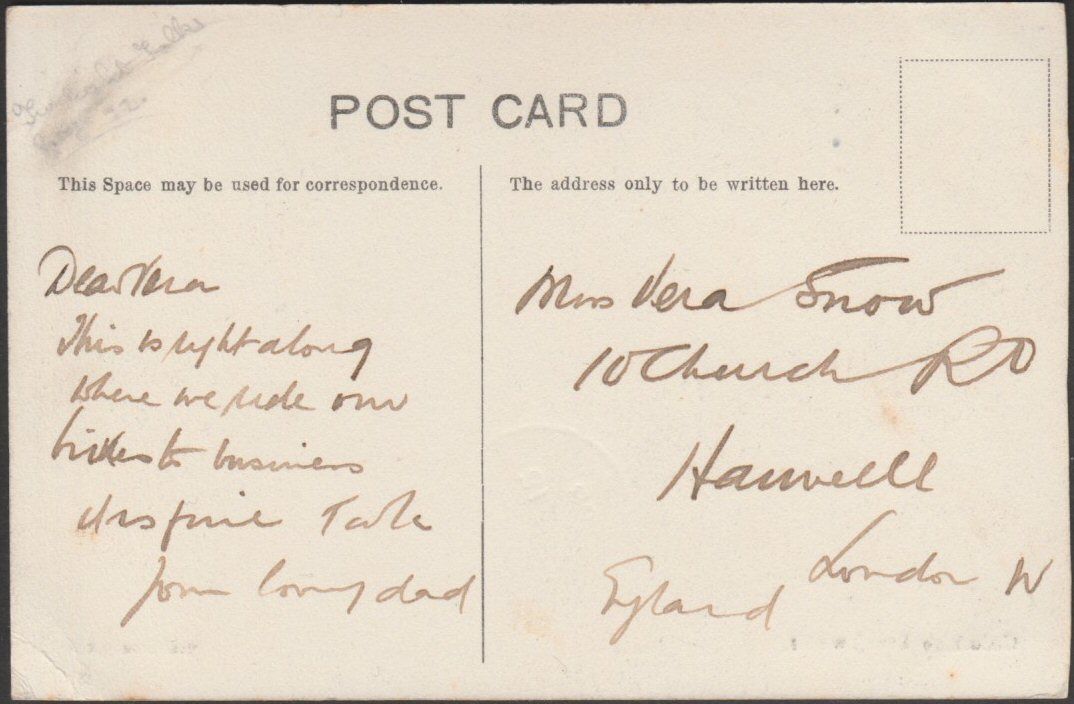 POST CARD
This Space may be used for correspondence.
The address only to be written here.
Dear Vera
This is right along
where we ride our
bikes to business
its fine
Your loving dad
Miss Vera Snow
10 Church RD
Hanwell
London W
England